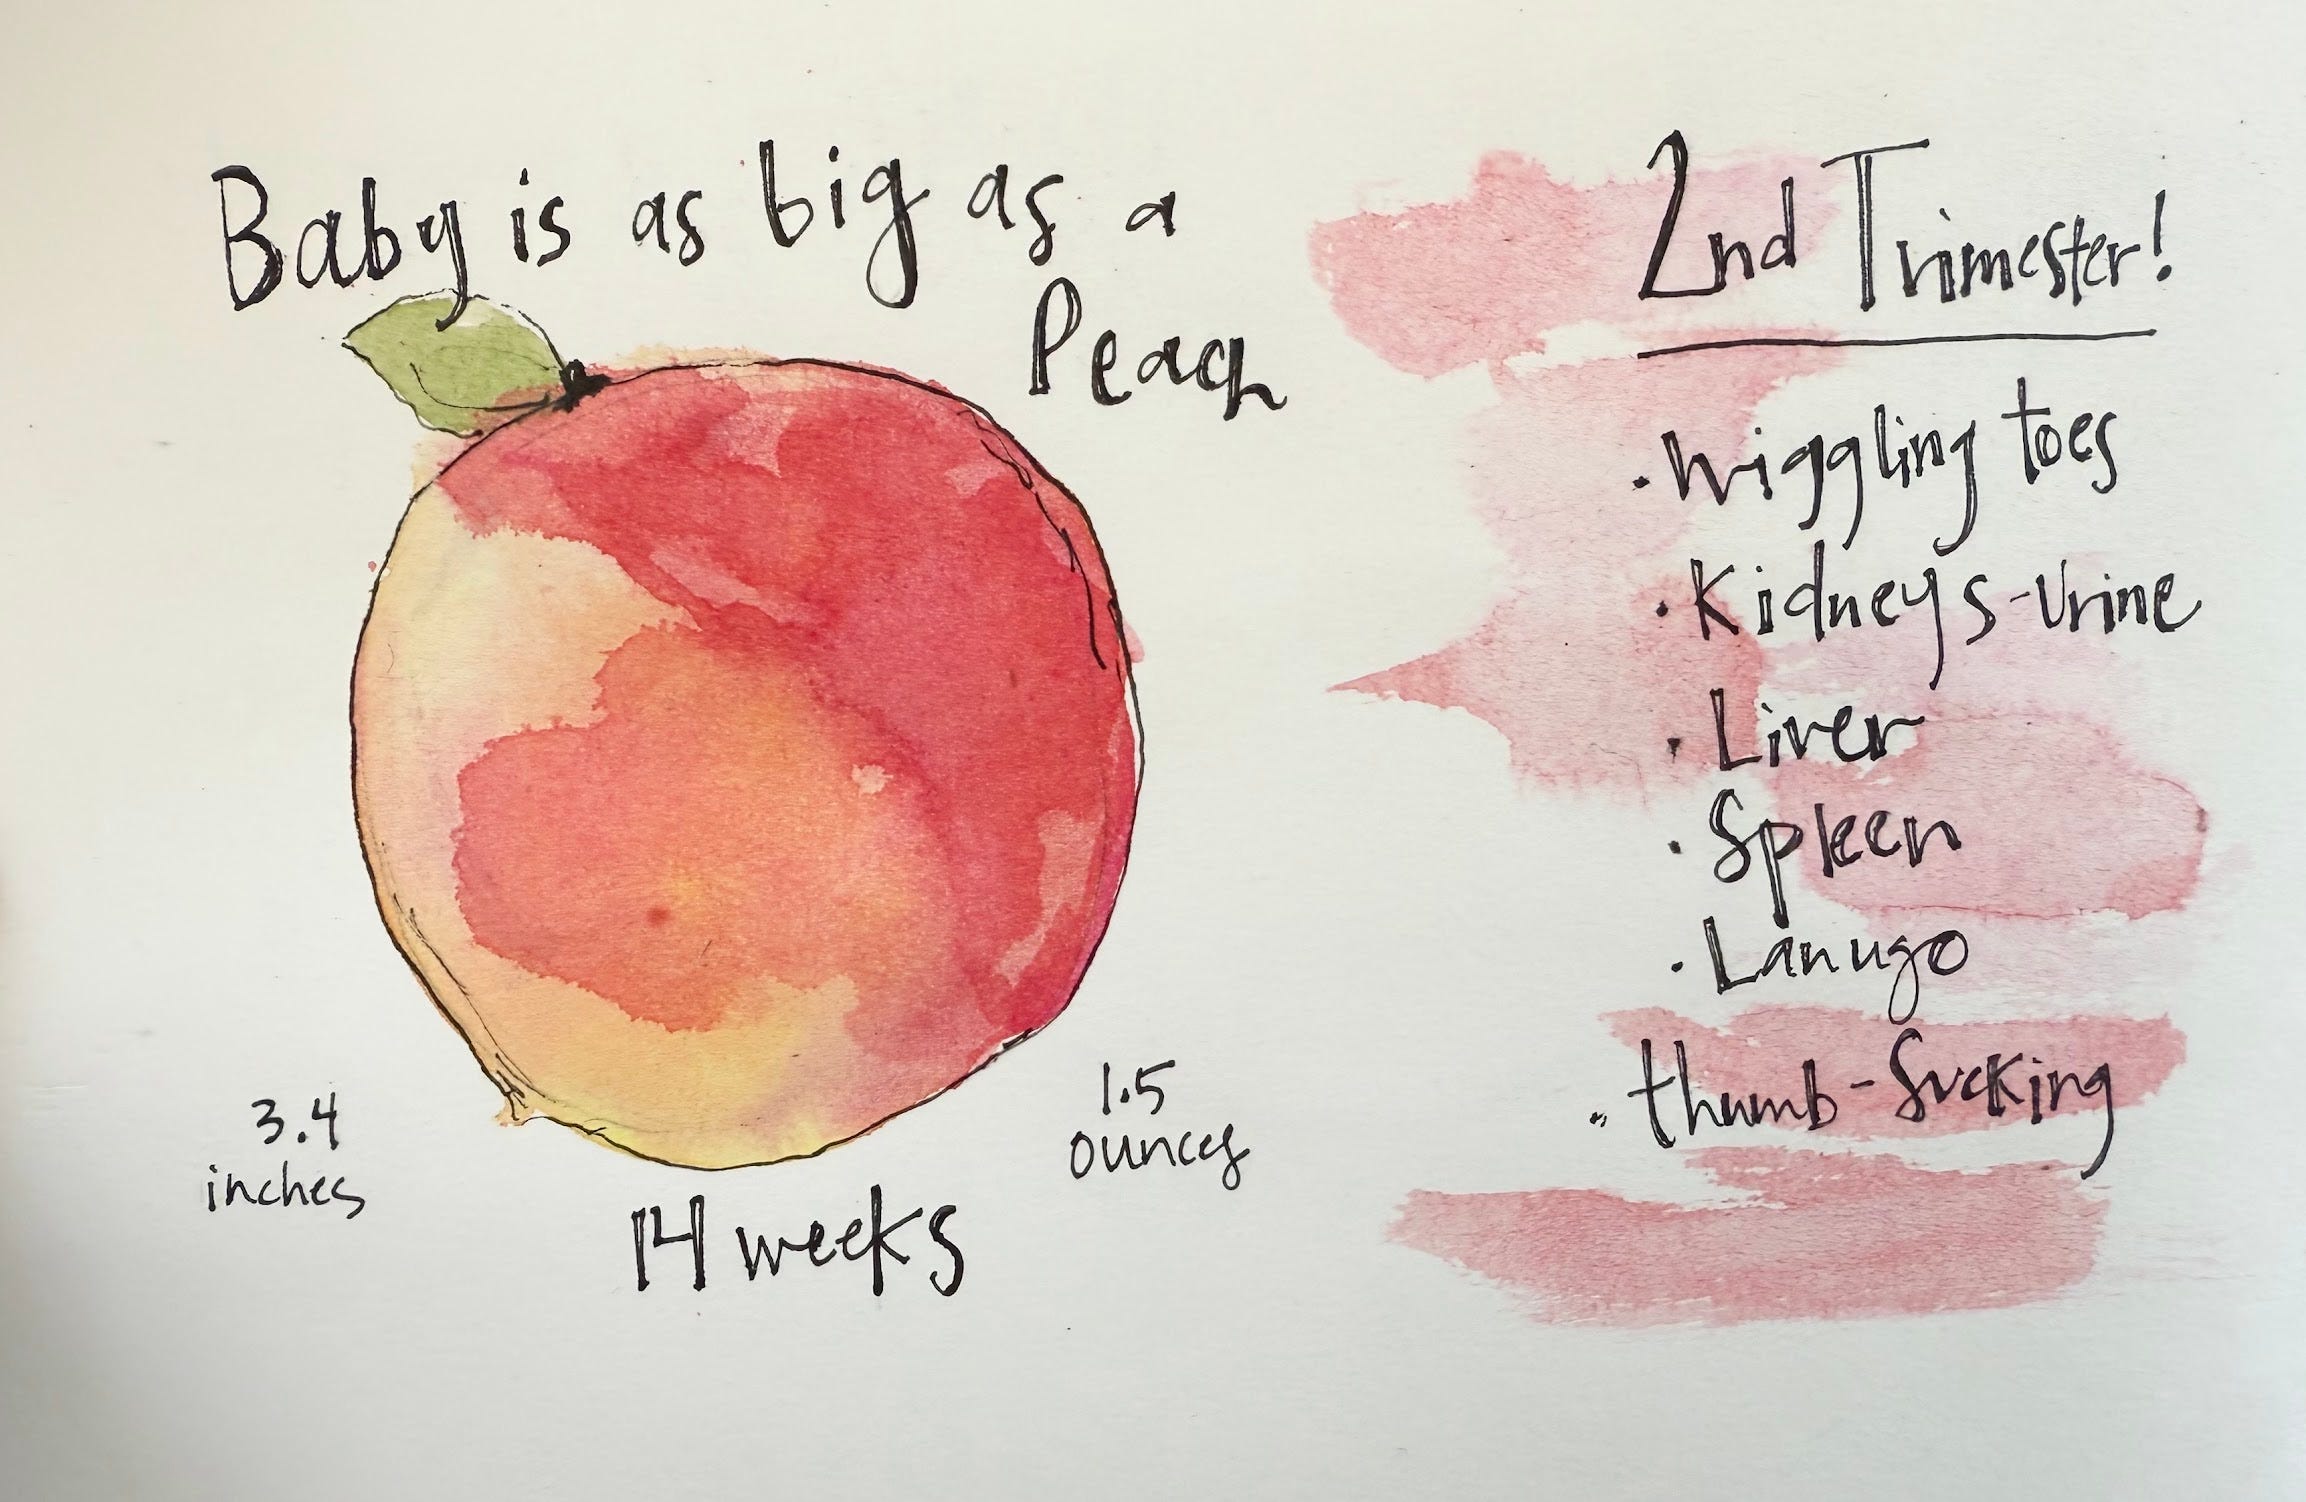 Baby is as big as a
Peach
3.4
inches
1.5
ounces
14 weeks
2nd Trimester!
· wiggling toes
· Kidneys-Urine
· Liver
· Spleen
· Lanugo
· thumb-sucking